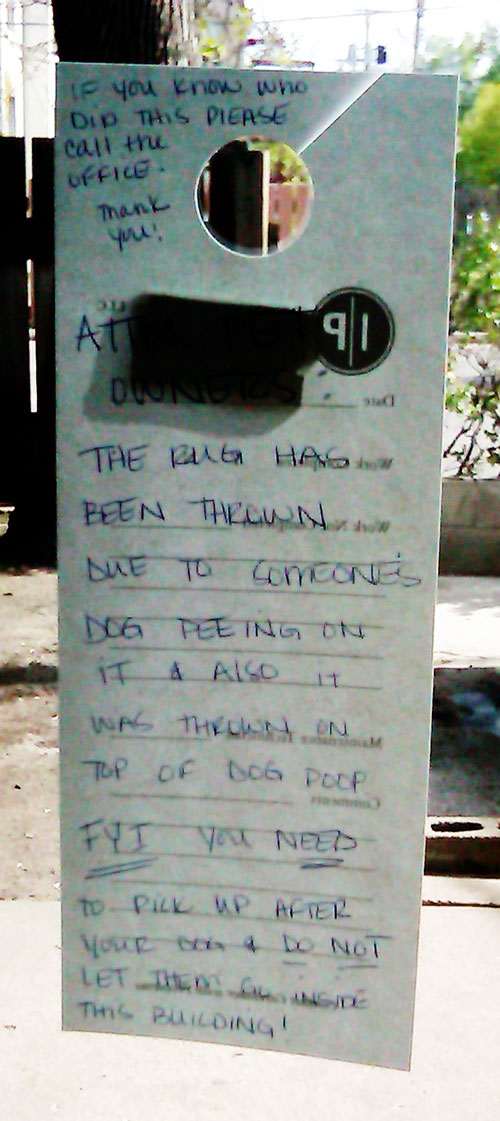 IF YOU KNOW WHO
DID THIS PLEASE
call the
OFFICE.
Thank
you!
ATTN PET
OWNERS:
THE RUG HAS
BEEN THROWN
DUE TO SOMEONE'S
DOG PEEING ON
IT & ALSO IT
WAS THROWN ON
TOP OF DOG POOP
FYI YOU NEED
TO PICK UP AFTER
YOUR DOG & DO NOT
LET THEM GO INSIDE
THIS BUILDING!